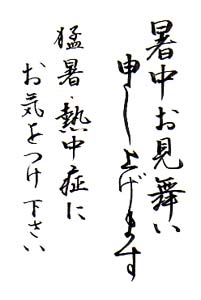 暑中お見舞い
申し上げます
猛暑・熱中症に
お気をつけ下さい